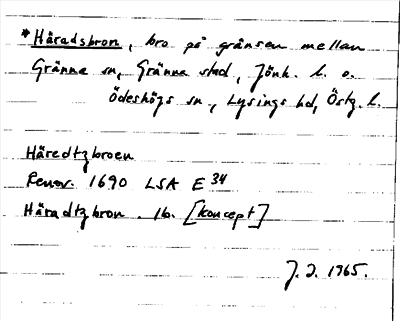 *Häradsbron, bro på gränsen mellan
Gränna sn, Gränna stad, Jönk. l. o.
Ödeshögs sn, Lysings hd, Östg. l.
Häredtzbroen
Renov. 1690 LSA E 34
Häradtzbron. Ib. [koncept]
J. I. 1965.